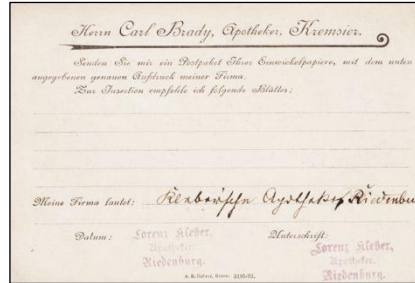 Herrn Carl Brady, Apotheker, Kremsier.
Senden Sie mir ein Postpaket Ihrer Einwickelpapiere, mit dem unten
angegebenen genauen Aufdruck meiner Firma.
Zur Insertion empfehle ich folgende Blätter:
Meine Firma lautet: Kleber'sche Apotheke, Riedenbu
Datum: Unterschrift:
Lorenz Kleber, Lorenz Kleber,
Apotheker. Apotheker.
Riedenburg. Riedenburg.